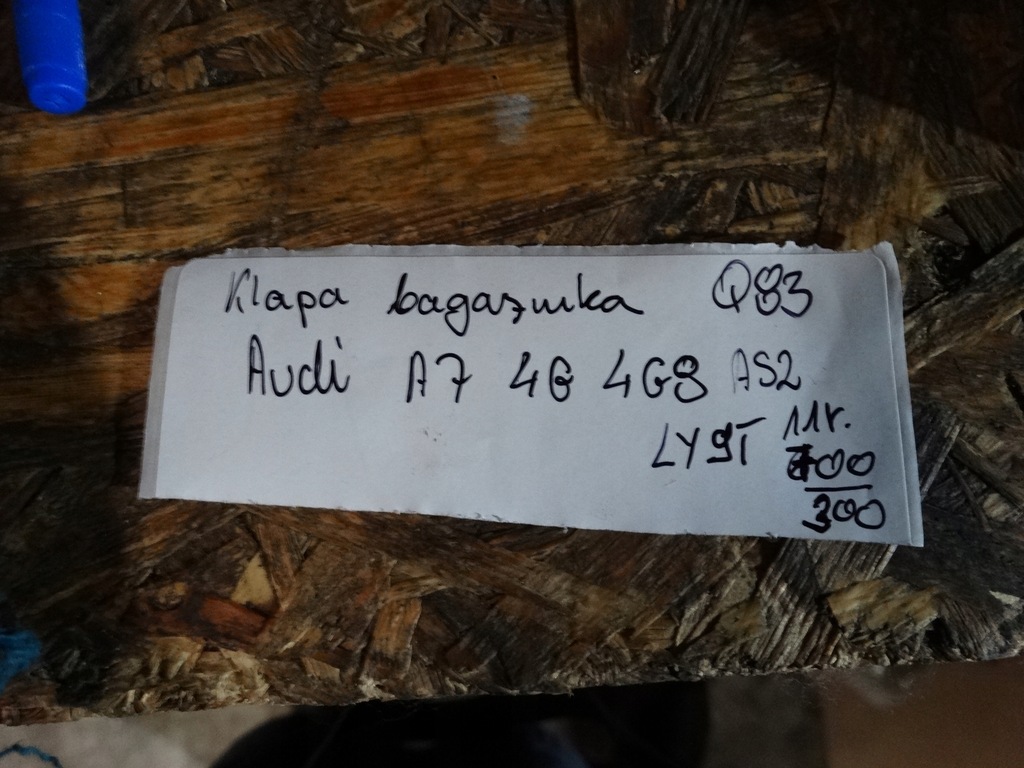 Klapa bagażnika Q83
Audi A7 4G 4G8 AS2
LY9T 11r.
300